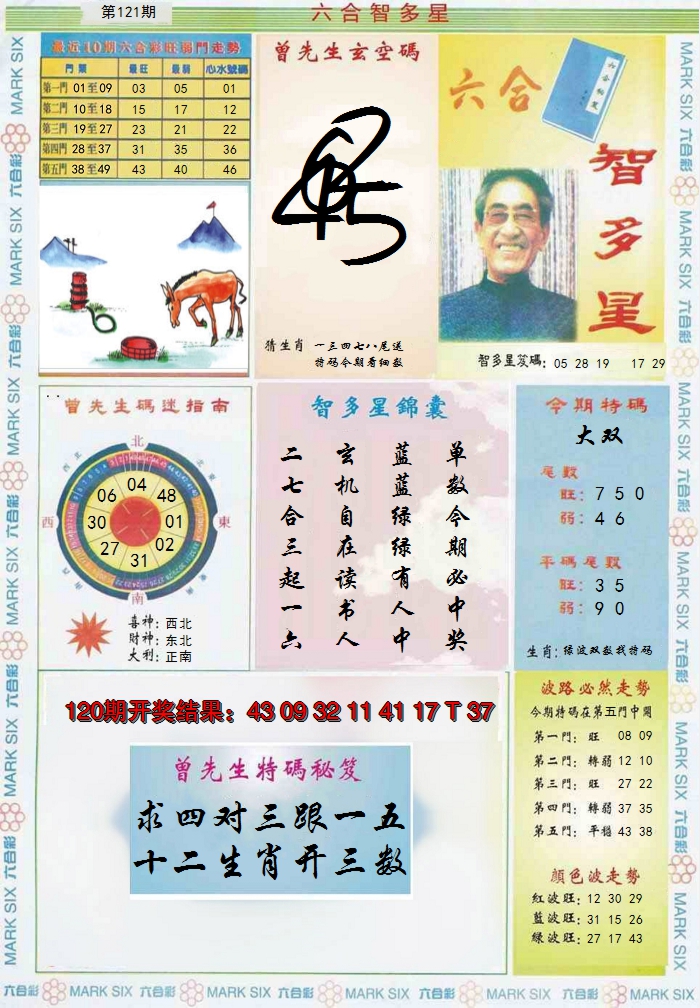 第121期
六合智多星
最近10期六合彩旺弱門走勢
門類 最旺 最弱 心水號碼
第一門 01至09 03 05 01
第二門 10至18 15 17 12
第三門 19至27 23 21 22
第四門 28至37 31 35 36
第五門 38至49 43 40 46
曾先生玄空碼
猜生肖 一三四七八尾送
特码今期看细数
六合
智多星
智多星笈碼: 05 28 19 17 29
曾先生碼迷指南
北
西
東
南
04
48
01
02
31
27
30
06
喜神: 西北
财神: 东北
大利: 正南
智多星錦囊
单数今期必中奖
蓝蓝绿绿有人中
玄机自在读书人
二七合三起一六
今期特碼
大双
尾數
旺: 7 5 0
弱: 4 6
平碼尾數
旺: 3 5
弱: 9 0
生肖: 绿波双数找特码
120期开奖结果: 43 09 32 11 41 17 T 37
曾先生特碼秘笈
求四对三跟一五
十二生肖开三数
波路必然走勢
今期特碼在第五門中開
第一門: 旺 08 09
第二門: 轉弱 12 10
第三門: 旺 27 22
第四門: 轉弱 37 35
第五門: 平穩 43 38
顏色波走勢
紅波旺: 12 30 29
藍波旺: 31 15 26
綠波旺: 27 17 43
六合彩 MARK SIX 六合彩 MARK SIX 六合彩 MARK SIX 六合彩 MARK SIX 六合彩 MARK SIX